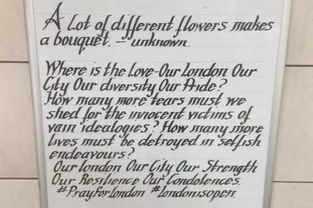 A Lot of different flowers makes
a bouquet. - unknown.
Where is the Love-Our London Our
City Our diversity Our Pride?
How many more tears must we
shed for the innocent victims of
vain idealogies? How many more
lives must be detroyed in selfish
endeavours?
Our London Our City Our Strength
Our Resilience Our Condolences.
#PrayForLondon #Londonisopen